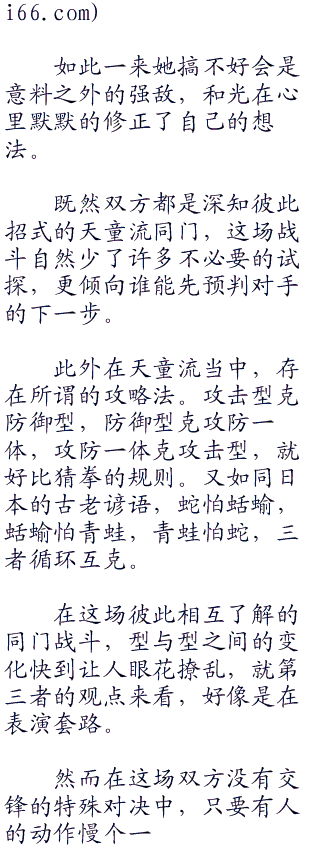 i66.com)
如此一来她搞不好会是
意料之外的强敌，和光在心
里默默的修正了自己的想
法。
既然双方都是深知彼此
招式的天童流同门，这场战
斗自然少了许多不必要的试
探，更倾向谁能先预判对手
的下一步。
此外在天童流当中，存
在所谓的攻略法。攻击型克
防御型，防御型克攻防一
体，攻防一体克攻击型，就
好比猜拳的规则。又如同日
本的古老谚语，蛇怕蛞蝓，
蛞蝓怕青蛙，青蛙怕蛇，三
者循环互克。
在这场彼此相互了解的
同门战斗，型与型之间的变
化快到让人眼花撩乱，就第
三者的观点来看，好像是在
表演套路。
然而在这场双方没有交
锋的特殊对决中，只要有人
的动作慢个一